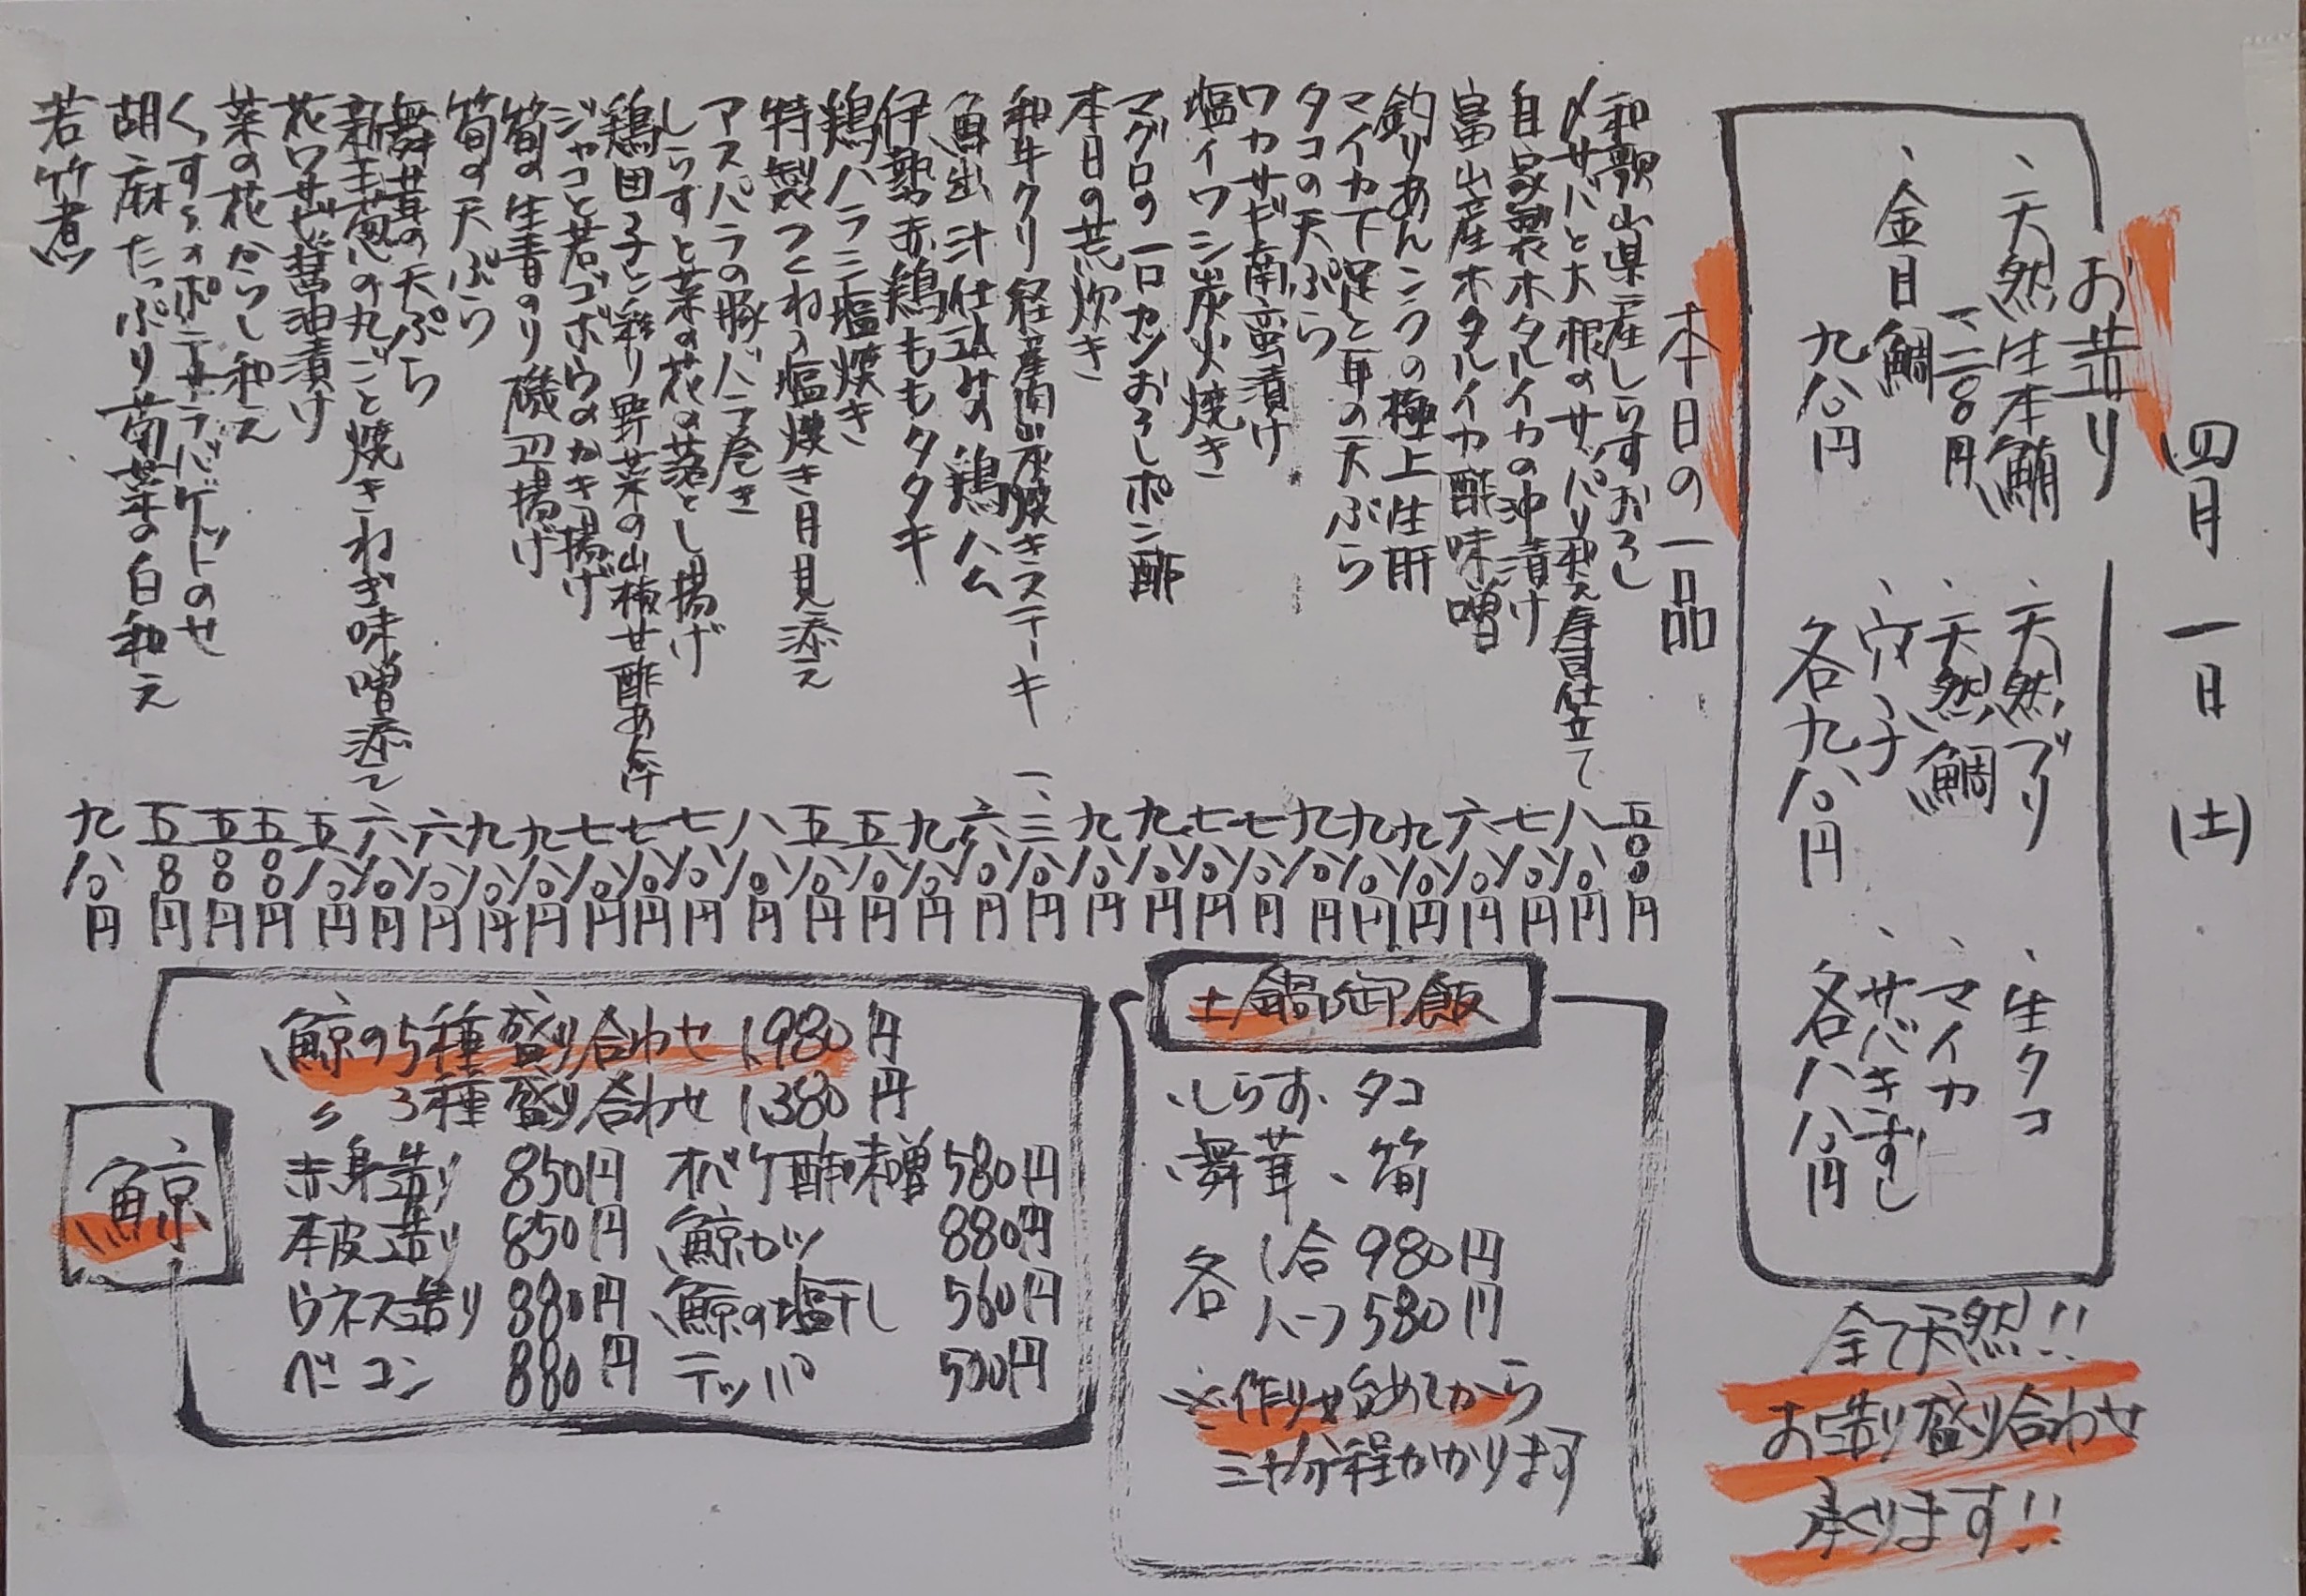 四月一日(土)
お造り
、天然生本鮪
一、二八〇円
、金目鯛
九八〇円
、天然ブリ
、天然鯛
、穴子
各九八〇円
、生タコ
、マイカ
、サバきずし
各八八〇円
全て天然!!
お造り盛り合わせ
承ります!!
本日の一品
和歌山県産しらすおろし 五〇〇円
〆サバと大根のサッパリ和え寿司仕立て 八八〇円
自家製ホタルイカの沖漬け 七八〇円
富山産ホタルイカ酢味噌 六八〇円
釣りあんこうの極上生肝 九八〇円
マイカ下足と耳の天ぷら 九八〇円
タコの天ぷら 九八〇円
ワカサギ南蛮漬け 七八〇円
塩イワシ炭火焼き 七八〇円
マグロの一口カツおろしポン酢 九八〇円
本日の荒炊き 九八〇円
和牛クリ 経産肉炭焼きステーキ 一、三八〇円
魚出汁仕込みの鶏ハム 六八〇円
伊勢赤鶏ももタタキ 九八〇円
鶏ハラミ塩焼き 五八〇円
特製つくね 塩焼き月見添え 五八〇円
アスパラの豚バラ巻き 八八〇円
しらすと菜の花の落とし揚げ 七八〇円
鶏団子と彩り野菜の山椒甘酢あんかけ 七八〇円
ジャコと若ゴボウのかき揚げ 七八〇円
筍の生青のり磯辺揚げ 九八〇円
筍の天ぷら 九八〇円
舞茸の天ぷら 六八〇円
新玉葱の丸ごと焼きねぎ味噌添え 六八〇円
花ワサビ醤油漬け 五八〇円
菜の花からし和え 五〇〇円
くずしポテサラバゲットのせ 五〇〇円
胡麻たっぷり菊菜の白和え 五八〇円
若竹煮 九八〇円
土鍋御飯
、しらす、タコ
、舞茸、筍
各 1合 980円
ハーフ 580円
※作り始めてから
三十分程かかります
鯨
、鯨の5種盛り合わせ 1,980円
〃 3種盛り合わせ 1,380円
赤身造り 850円 オバケ酢味噌 580円
本皮造り 850円 鯨カツ 880円
ウネス造り 880円 鯨の塩干し 560円
ベーコン 880円 テッパ 500円